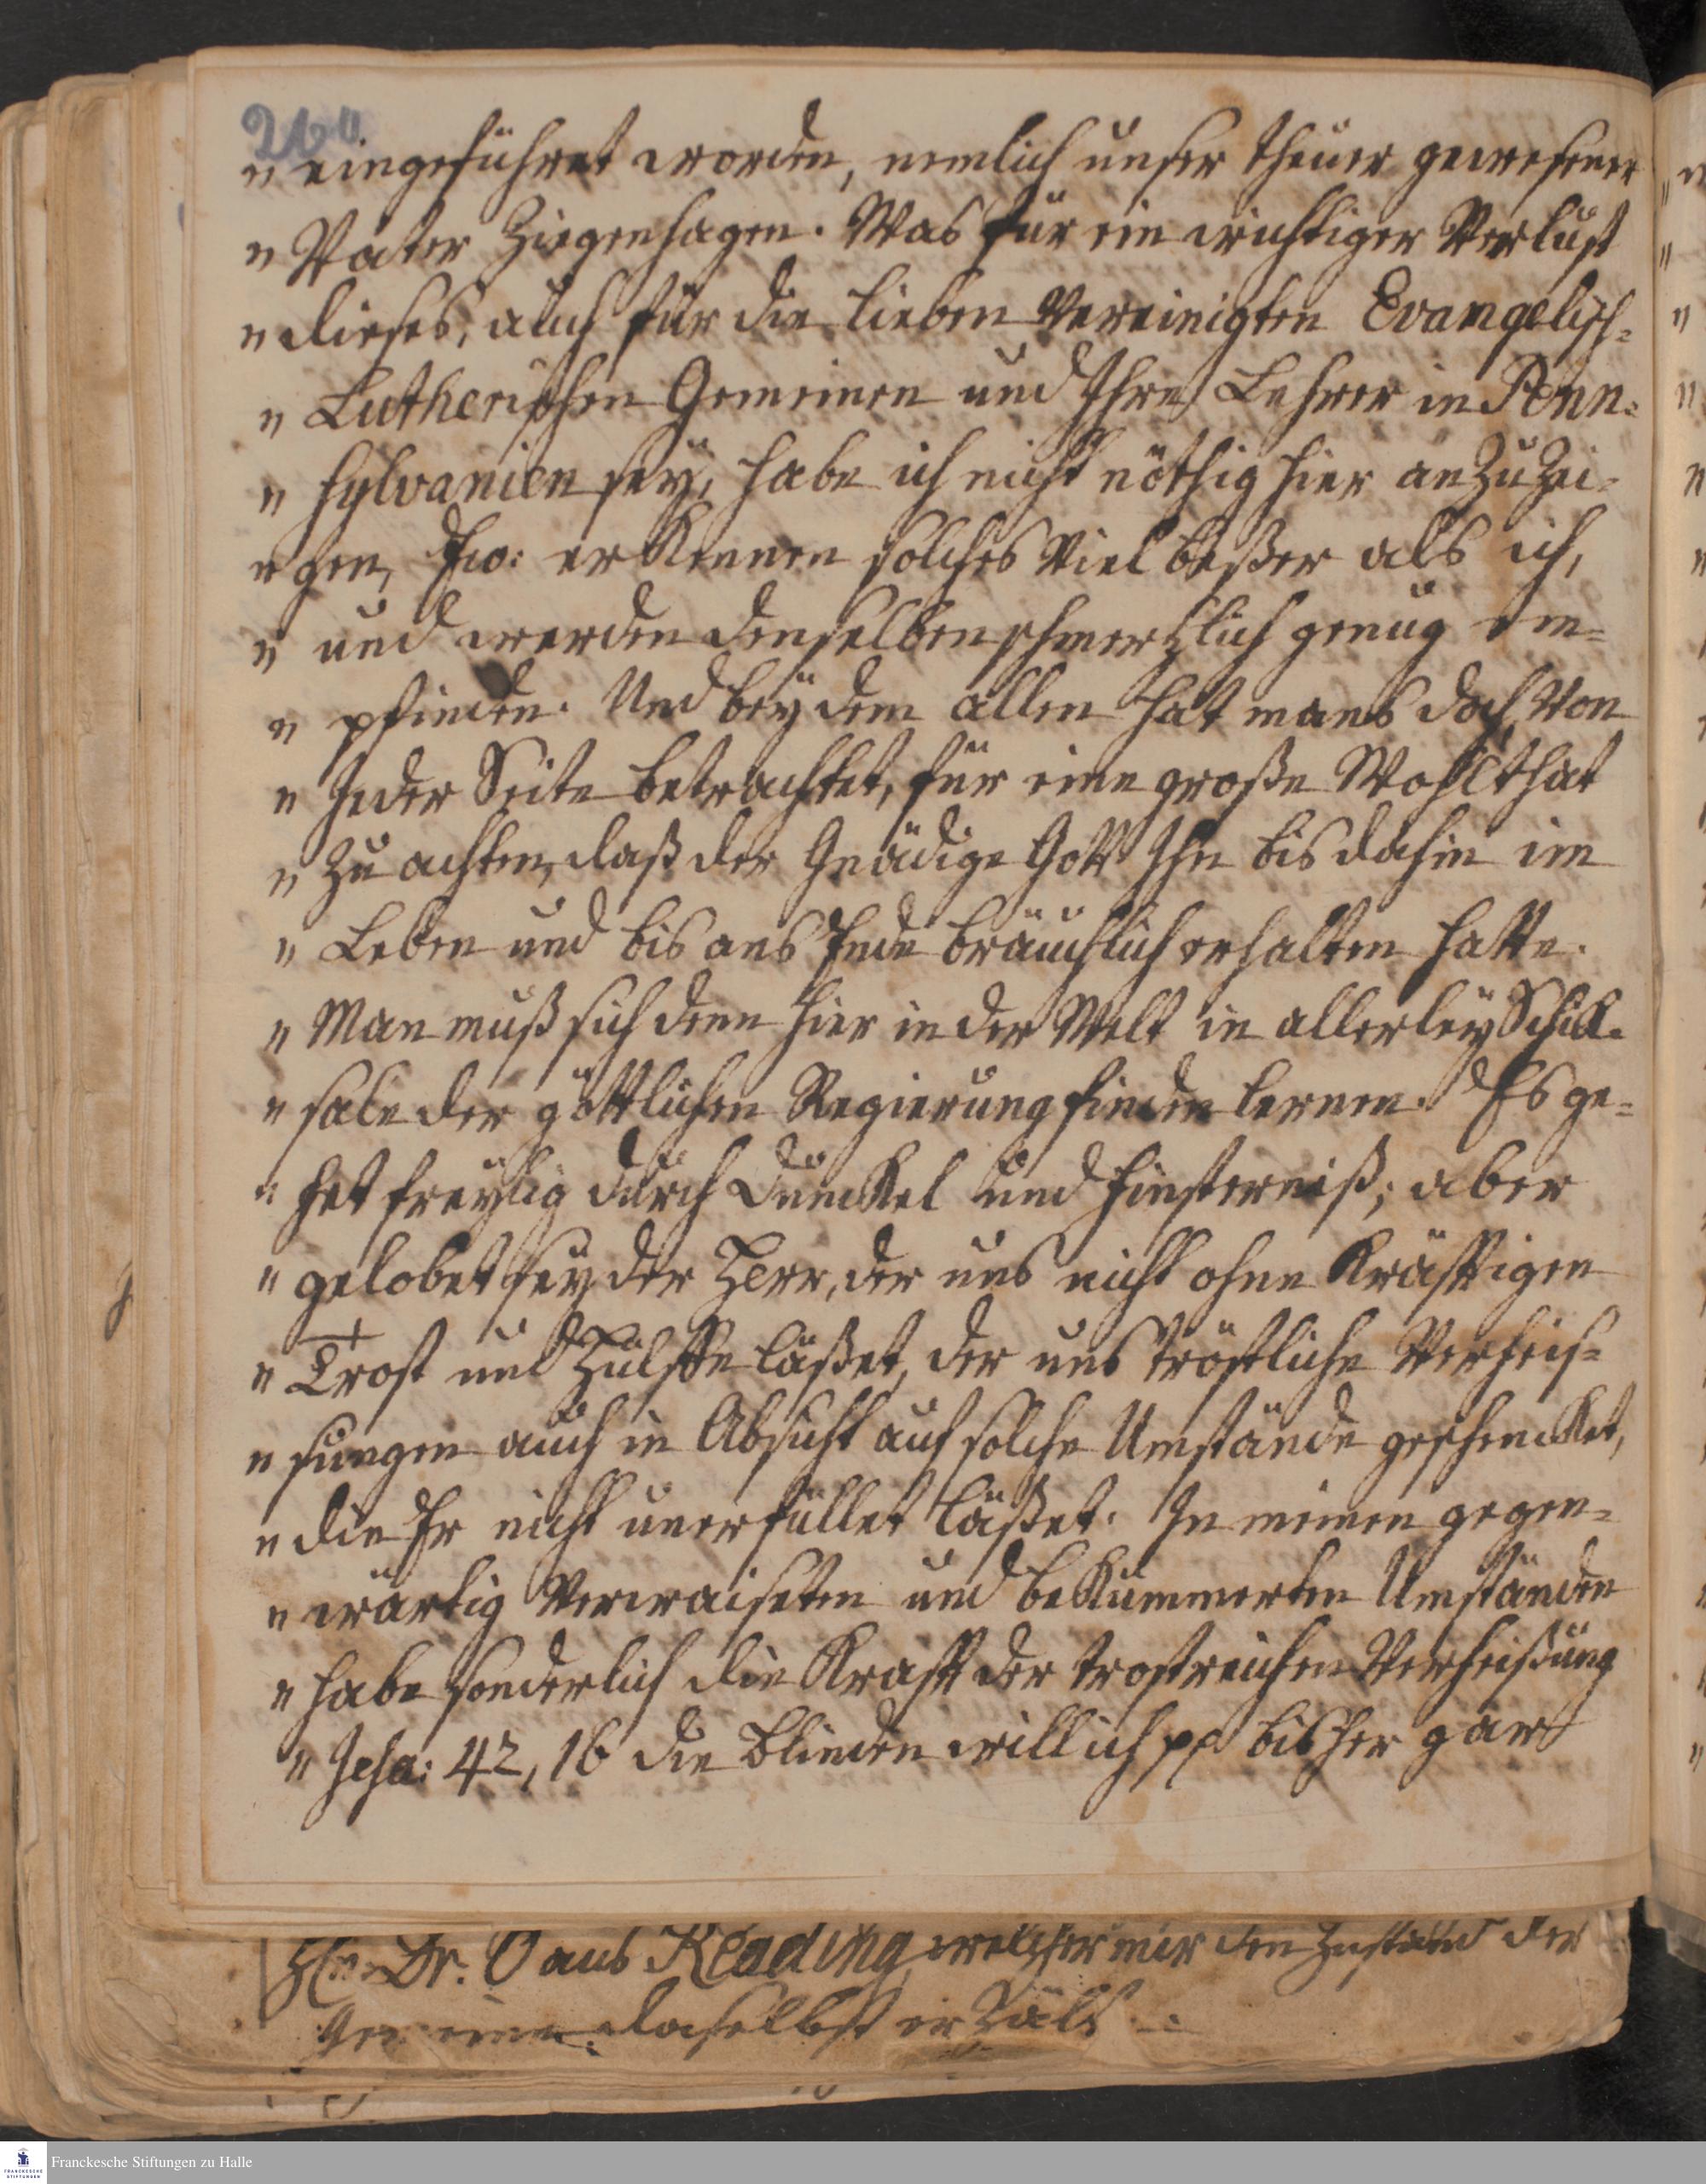 260
" eingeführet worden, nemlich unser theüer gewesener
" Vater Ziegenhagen. Was für ein wichtiger Verlust
" dieses, auch für die lieben Vereinigten Evangelisch-
" Lutherischen Gemeinen und Ihre Lehrer in Penn-
" sylvanien seÿ, habe ich nicht nöthig hier anzuzei-
" gen, Ew: erkennen solches viel beßer als ich,
" und werden denselben schmertzlich genug em-
" pfinden. Und beÿ dem allen hat mans doch, von
" Jeder Seite betrachtet, für eine große Wohlthat
" zu achten, daß der Gnädige Gott Ihn bis dahin im
" Leben und bis ans Ende bräuchlich erhalten hatte.
" Man muß sich denn hier in der Welt in allerleÿ Schick-
" sale der göttlichen Regierung finden lernen. Es ge-
" het freÿlig durch Dunckel und Finsterniß; aber
" gelobet seÿ der Herr, der uns nicht ohne Kräfftigen
" Trost und Hülffe läßet, der uns tröstliche Verheis-
" sungen auch in Absicht auf solche Umstände geschencket,
" die Er nicht unerfüllet läßet. In meinen gegen-
" wärtig verwaiseten und bekümmerten Umständen
" habe sonderlich die Krafft der trostreichen Verheißung
" Jesa: 42, 16 die Blinden will ich pp bisher gar
H. Dr. O aus Reading welcher mir den Zustand der
Gemeine daselbst erzält
Franckesche Stiftungen zu Halle